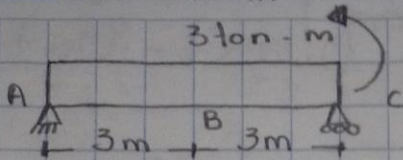 3 ton - m
A B C
3m 3m